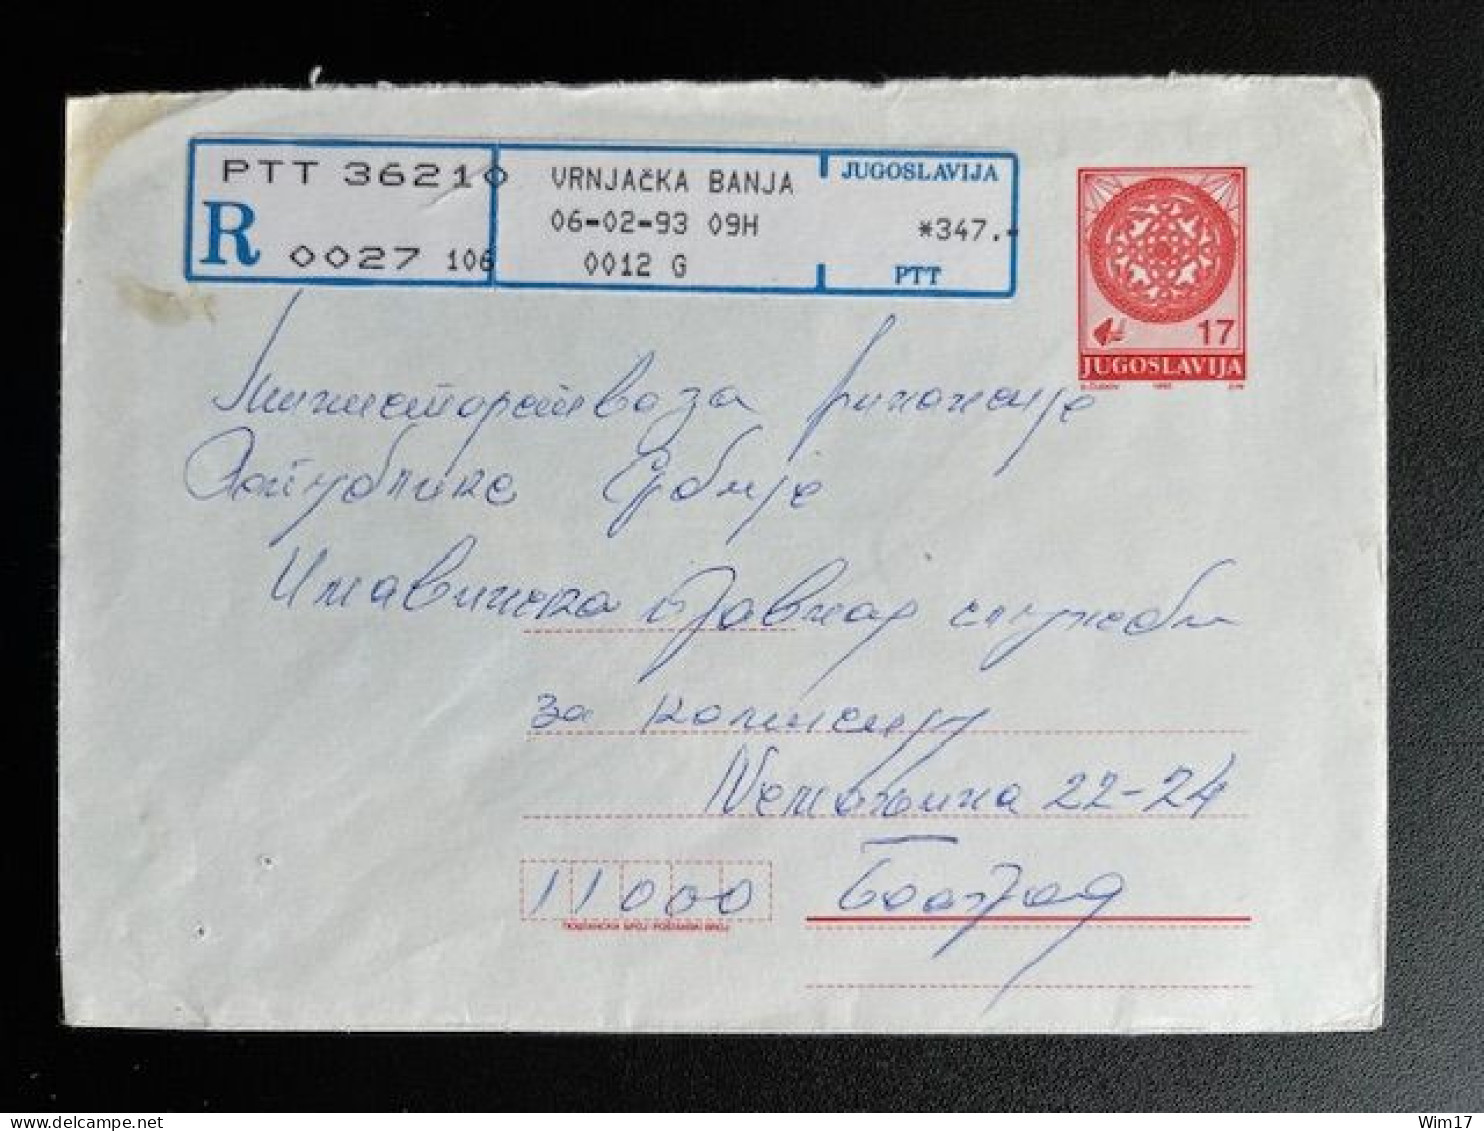 PTT 36210
R
0027 106
VRNJAČKA BANJA
06-02-93 09H
0012 G
JUGOSLAVIJA
*347.-
PTT
17
JUGOSLAVIJA
1992
Министарство за финансије
Републике Србије
јавних служби
за комисију
Немањина 22-24
11000 Београд
Wim17